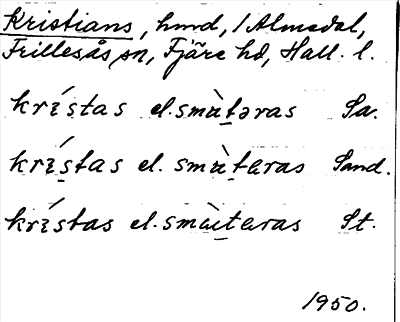 Kristians, hmd, i Almedal,
Frillesås sn, Fjäre hd, Hall. l.
krístas el. smàtəras Sa.
krístas el. smàtɐras Sand.
krístas el. smàtɐras St.
1950.